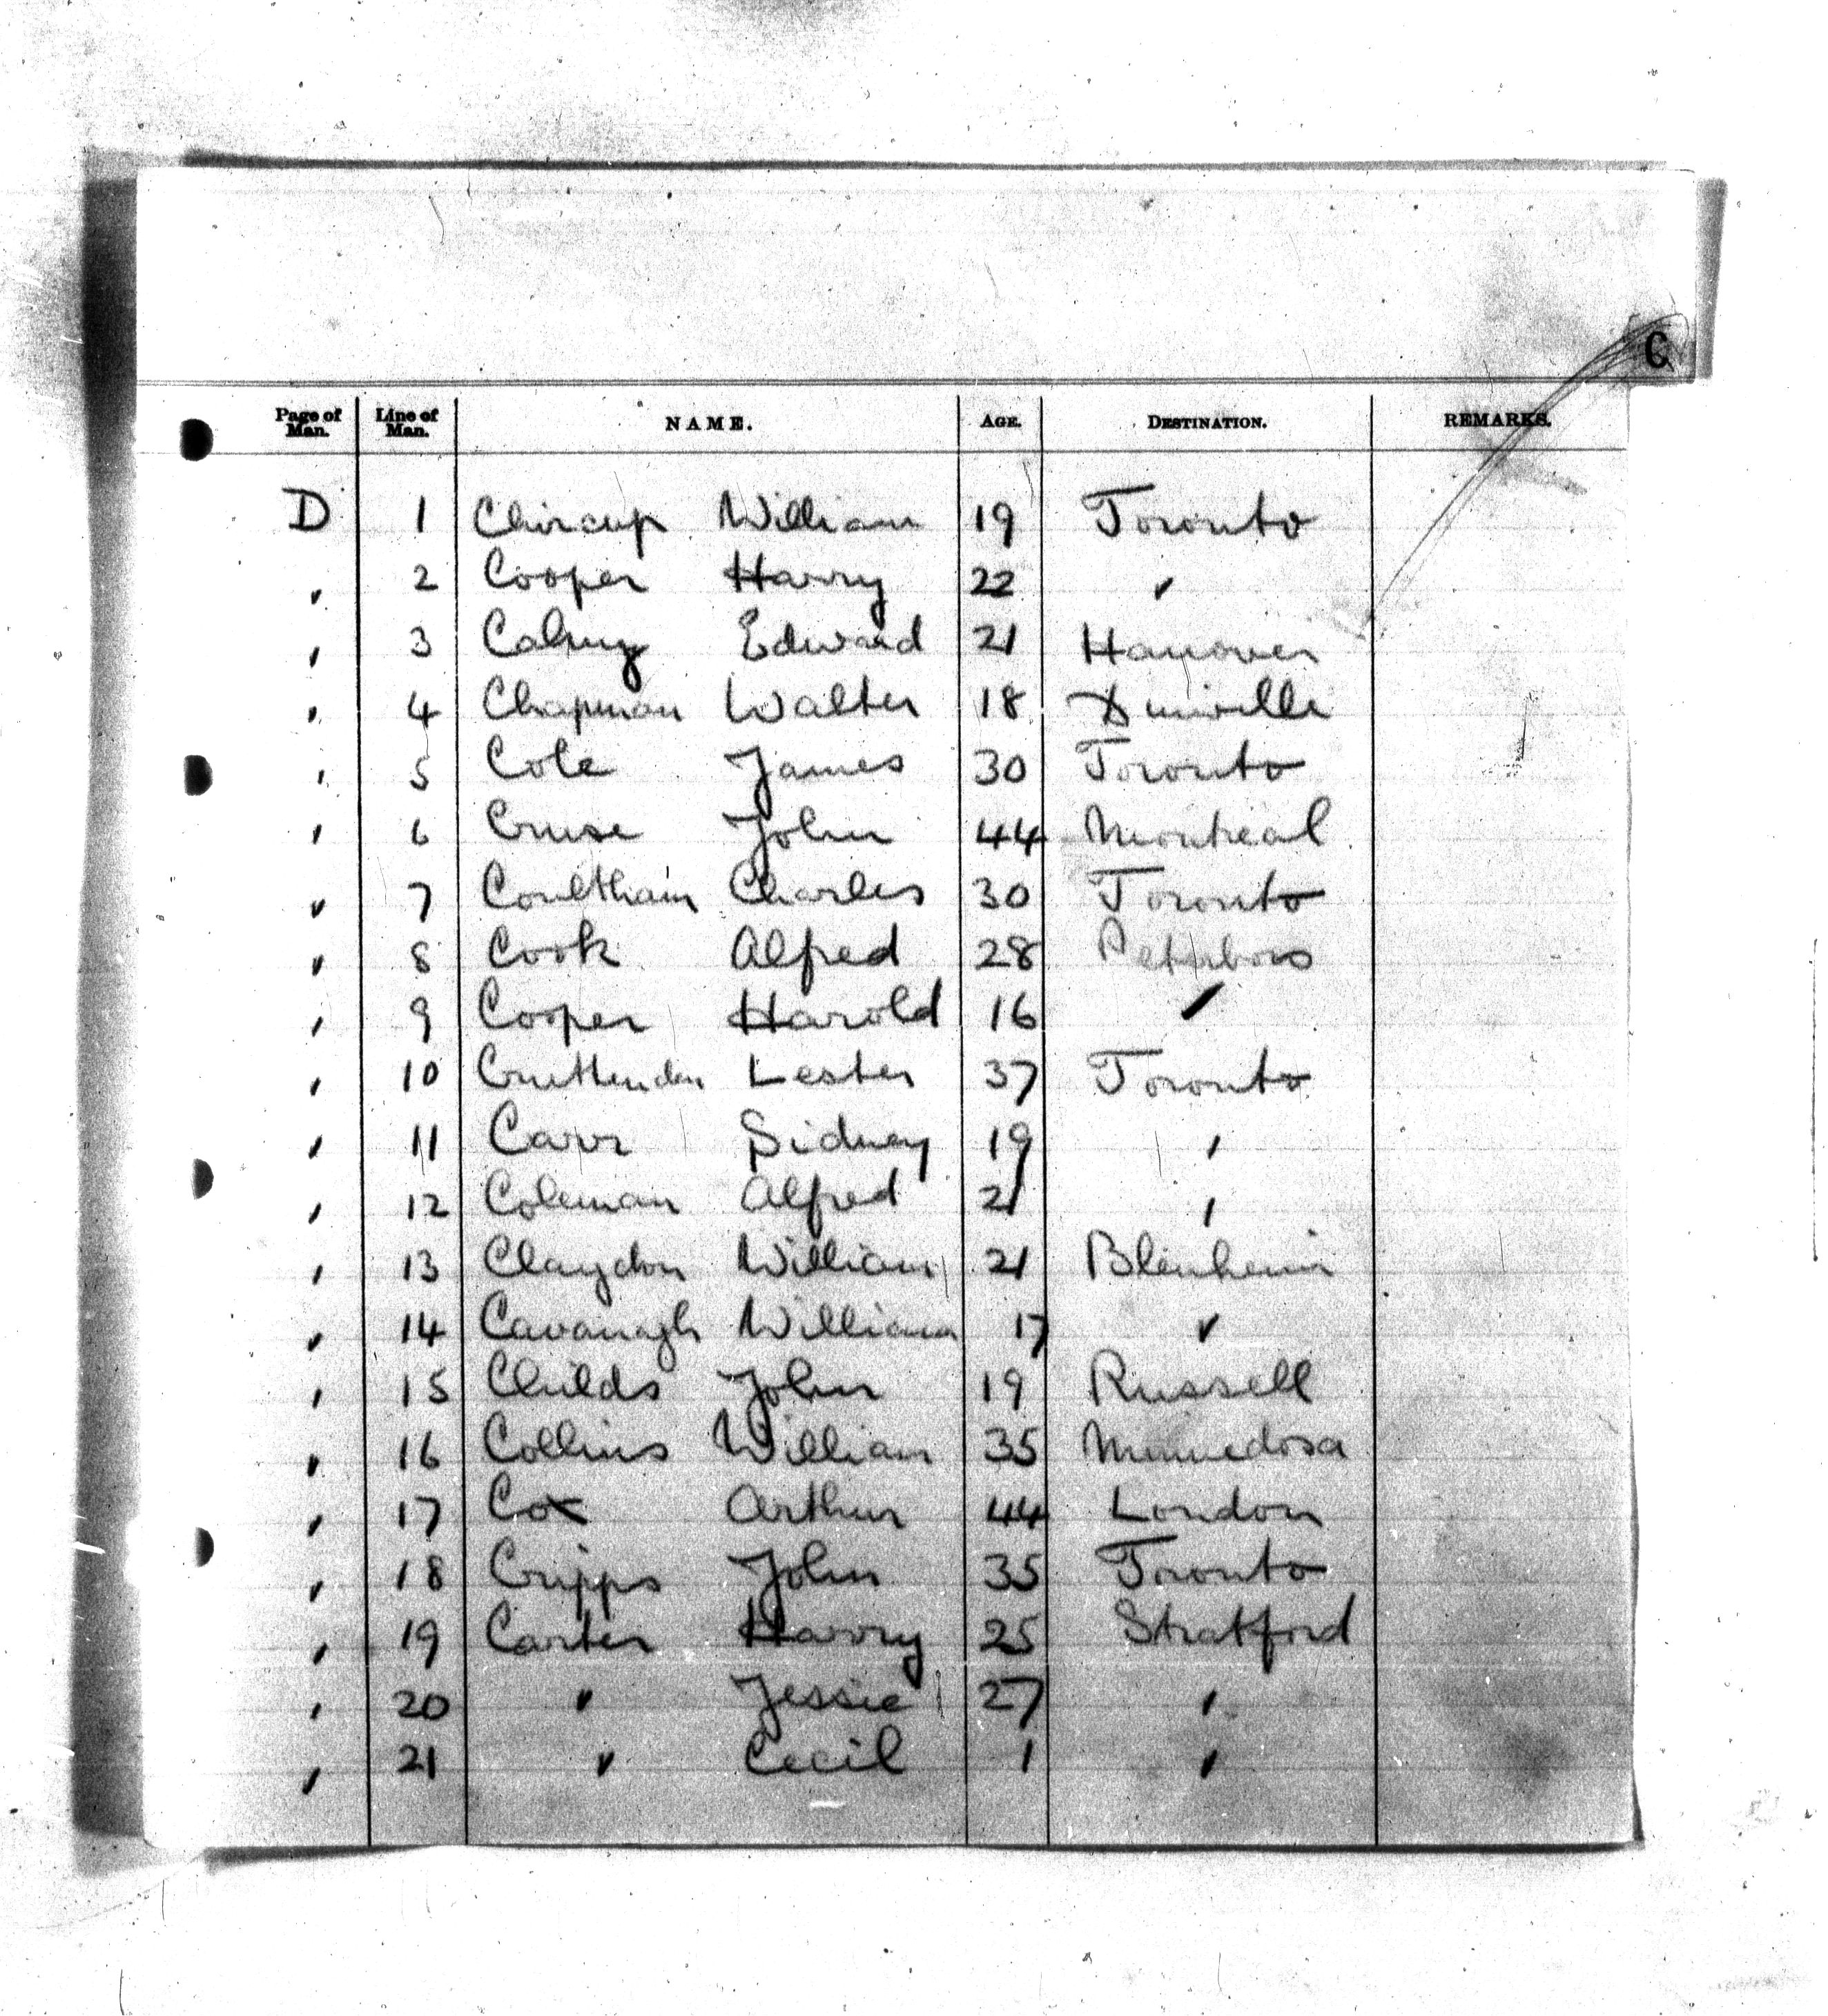 C
Page of Man. Line of Man. NAME. AGE. DESTINATION. REMARKS.
D 1 Chircup William 19 Toronto
" 2 Cooper Harry 22 "
" 3 Edward 21 Hanover
" 4 Chapman Walter 18
" 5 Cole James 30 Toronto
" 6 Cruse John 44 Montreal
" 7 Coultham Charles 30 Toronto
" 8 Cook Alfred 28 Peterboro
" 9 Cooper Harold 16 "
" 10 Cruttenden Lester 37 Toronto
" 11 Carr Sidney 19 "
" 12 Coleman Alfred 21 "
" 13 Claydon William 21 Blenheim
" 14 Cavanagh William 17 "
" 15 Childs John 19 Russell
" 16 Collins William 35 Minnedosa
" 17 Cox Arthur 44 London
" 18 Cripps John 35 Toronto
" 19 Carter Harry 25 Stratford
" 20 " Jessie 27 "
" 21 " Cecil 1 "